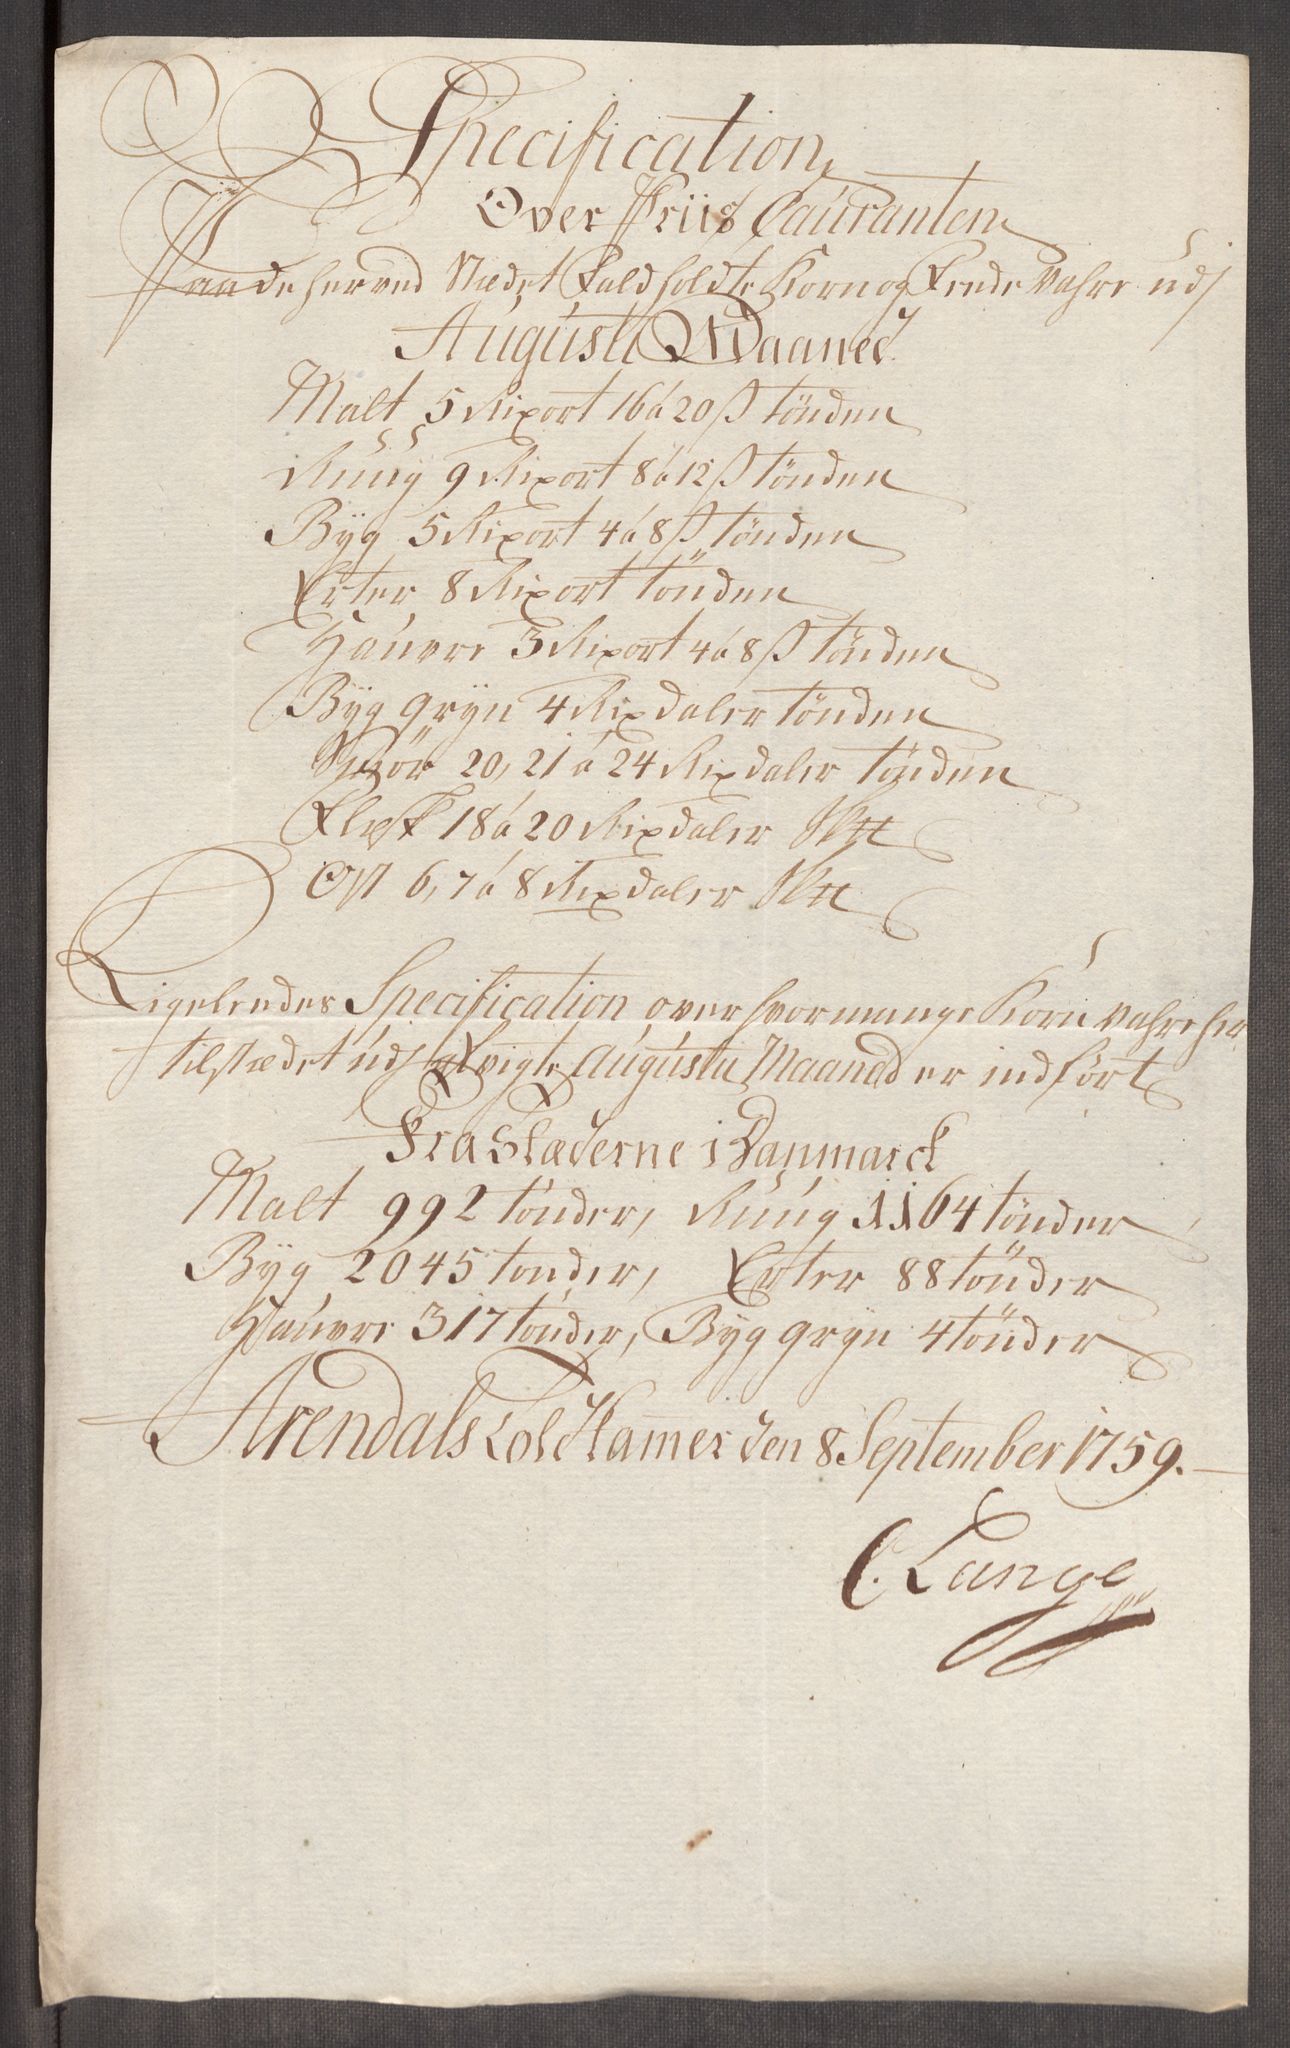 Specification
Over Priis Couranten
Paa de her ved Stædet faldholdte Korn og Fede Vahre udj
Augusti Maaned
Malt 5 Rixort 16 á 20 ß tönden
Rúúg 9 Rixort 8 á 12 ß tönden
Bÿg 5 Rixort 4 á 8 ß tönden
Erter 8 Rixort tönden
Haúvre 3 Rixort 4 á 8 ß tönden
Bÿg grÿn 4 Rixdaler tönden
Smör 20, 21 á 24 Rixdaler tönden
Flesk 18 á 20 Rixdaler Sk℔
Ost 6, 7 á 8 Rixdaler Sk℔
Ligeleedes Specification over hvormange Korn vahre her
til stædet udj Augusti Maaned er indfört
Fra Stæderne i Danmarck
Malt 992 tönder, Rúúg 1164 tönder
Bÿg 2045 tönder, Erter 88 tönder
Haúvre 317 tönder, Bÿg grÿn 4 tönder
Arendals Told Kamer den 8 September 1759.
C. Lange